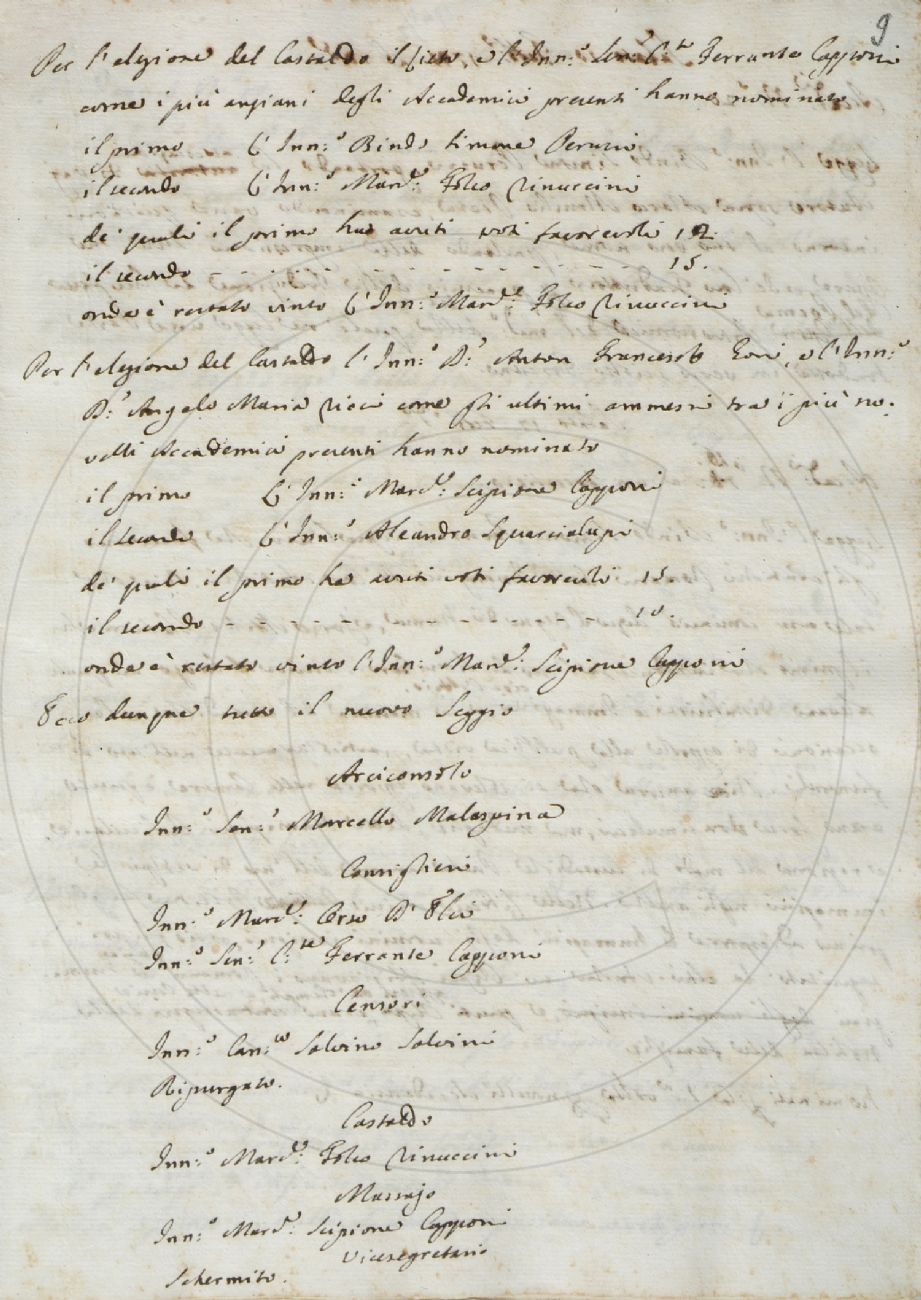 9
Per l'elezione del Castaldo il sieto, e l'Inn:o Sen:r C:te Ferrante Capponi
come i più anziani degli Accademici presenti hanno nominato
il primo L'Inn:o Bindo Simone Peruzzi
il secondo L'Inn:o March: Folco Rinuccini
de' quali il primo ha avuti voti favorevoli 12.
il secondo - - - - - - - - - - - - - - - 15.
onde è restato vinto L'Inn:o March: Folco Rinuccini
Per l'elezione del Castaldo l'Inn:o D:r Anton Francesco Gori, e l'Inn:o
D:r Angelo Maria Ricci come gli ultimi ammessi tra i più no:
velli Accademici presenti hanno nominato
il primo L'Inn:o March: Scipione Capponi
il secondo L'Inn:o Aleandro Squarcialupi
de' quali il primo ha avuti voti favorevoli 15.
il secondo - - - - - - - - - - - - - - 10.
onde è restato vinto l'Inn:o March: Scipione Capponi
Ecco dunque tutto il nuovo Seggio
Arciconsolo
Inn:o Sen:r Marcello Malaspina
Consiglieri
Inn:o March: Orso D'Elci
Inn:o Sen:r C:te Ferrante Capponi
Censori
Inn:o Can:co Salvino Salvini
Ripurgato.
Castaldo
Inn:o March: Folco Rinuccini
Massajo
Inn:o March: Scipione Capponi
Vicesegretario
Schermito.